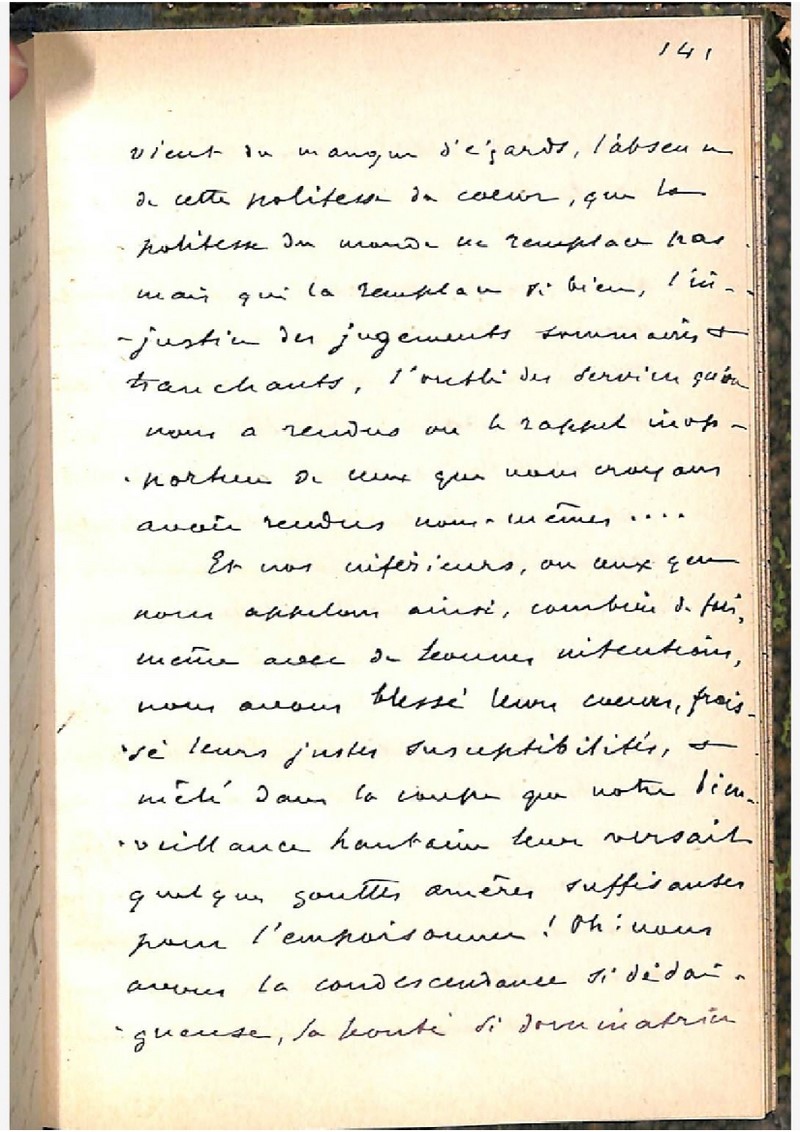 141
vient du manque d'égards, l'absence
de cette politesse du coeur, que la
politesse du monde ne remplace pas
mais qui la remplace si bien, l'in-
-justice des jugements sommaires &
tranchants, l'oubli des services qu'on
nous a rendus ou le rappel inop-
-portun de ceux que nous croyons
avoir rendus nous-mêmes ....
Et nos inférieurs, ou ceux que
nous appelons ainsi, combien de fois,
même avec de bonnes intentions,
nous avons blessé leurs coeurs, frois-
-sé leurs justes susceptibilités, &
mêlé dans la coupe que notre bien-
-veillance hautaine leur versait
quelques gouttes amères suffisantes
pour l'empoisonner ! Oh ! nous
avons la condescendance si dédai-
-gneuse, la bonté si dominatrice